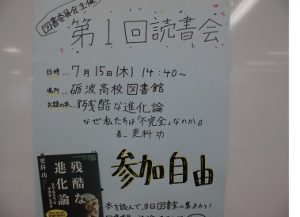 図書委員会主催
第1回読書会
日時… 7月15日(木) 14:40~
場所… 砺波高校図書館
お題の本…『残酷な進化論
なぜ私たちは「不完全」なのか』
著… 更科 功
残酷な
進化論
更科 功
参加自由
本を読んで、当日図書室に集まろう!